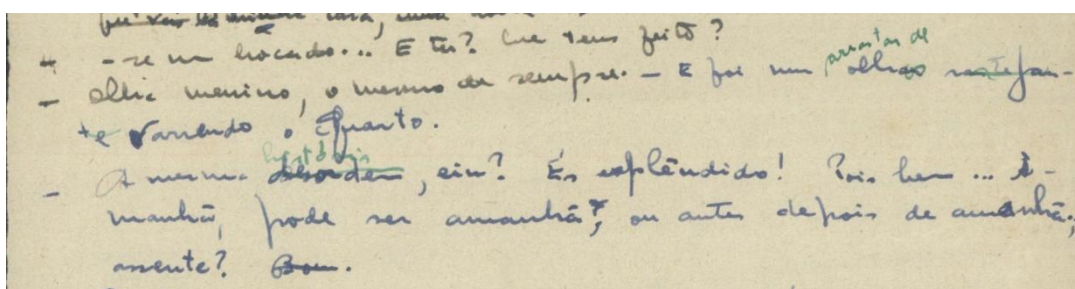 -se um bocado... E tu? Que tens feito?
- Olhe menino, o mesmo de sempre. - E foi um arrastar de olhos
te varrendo o quarto.
- A mesma desordem, ein? És esplêndido! Pois bem... À-
manhã, pode ser amanhã?, ou antes depois de amanhã;
assente? Bom.